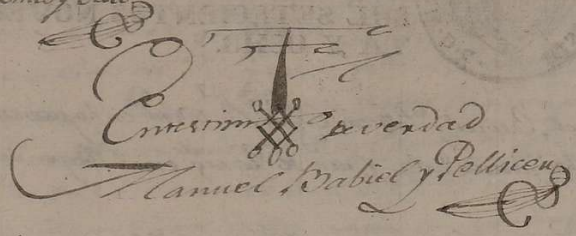 Entestim° de verdad
Manuel Babiel y Pellicer